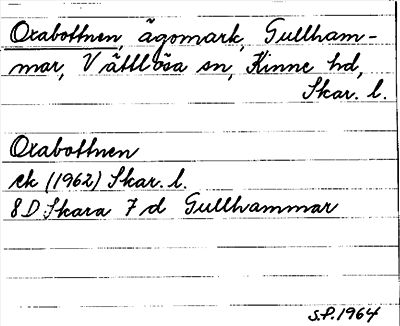 Oxabottnen, ägomark, Gullham-
mar, Vättlösa sn, Kinne hd,
Skar. l.
Oxabottnen
ek (1962) Skar. l.
8D Skara 7 d Gullhammar
S.P. 1964